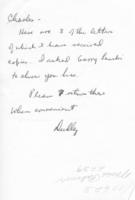 Charles -
Here are 3 of the letters
of which I have received
copies. I asked Garry
to show you
Please return these
when convenient
Dudley